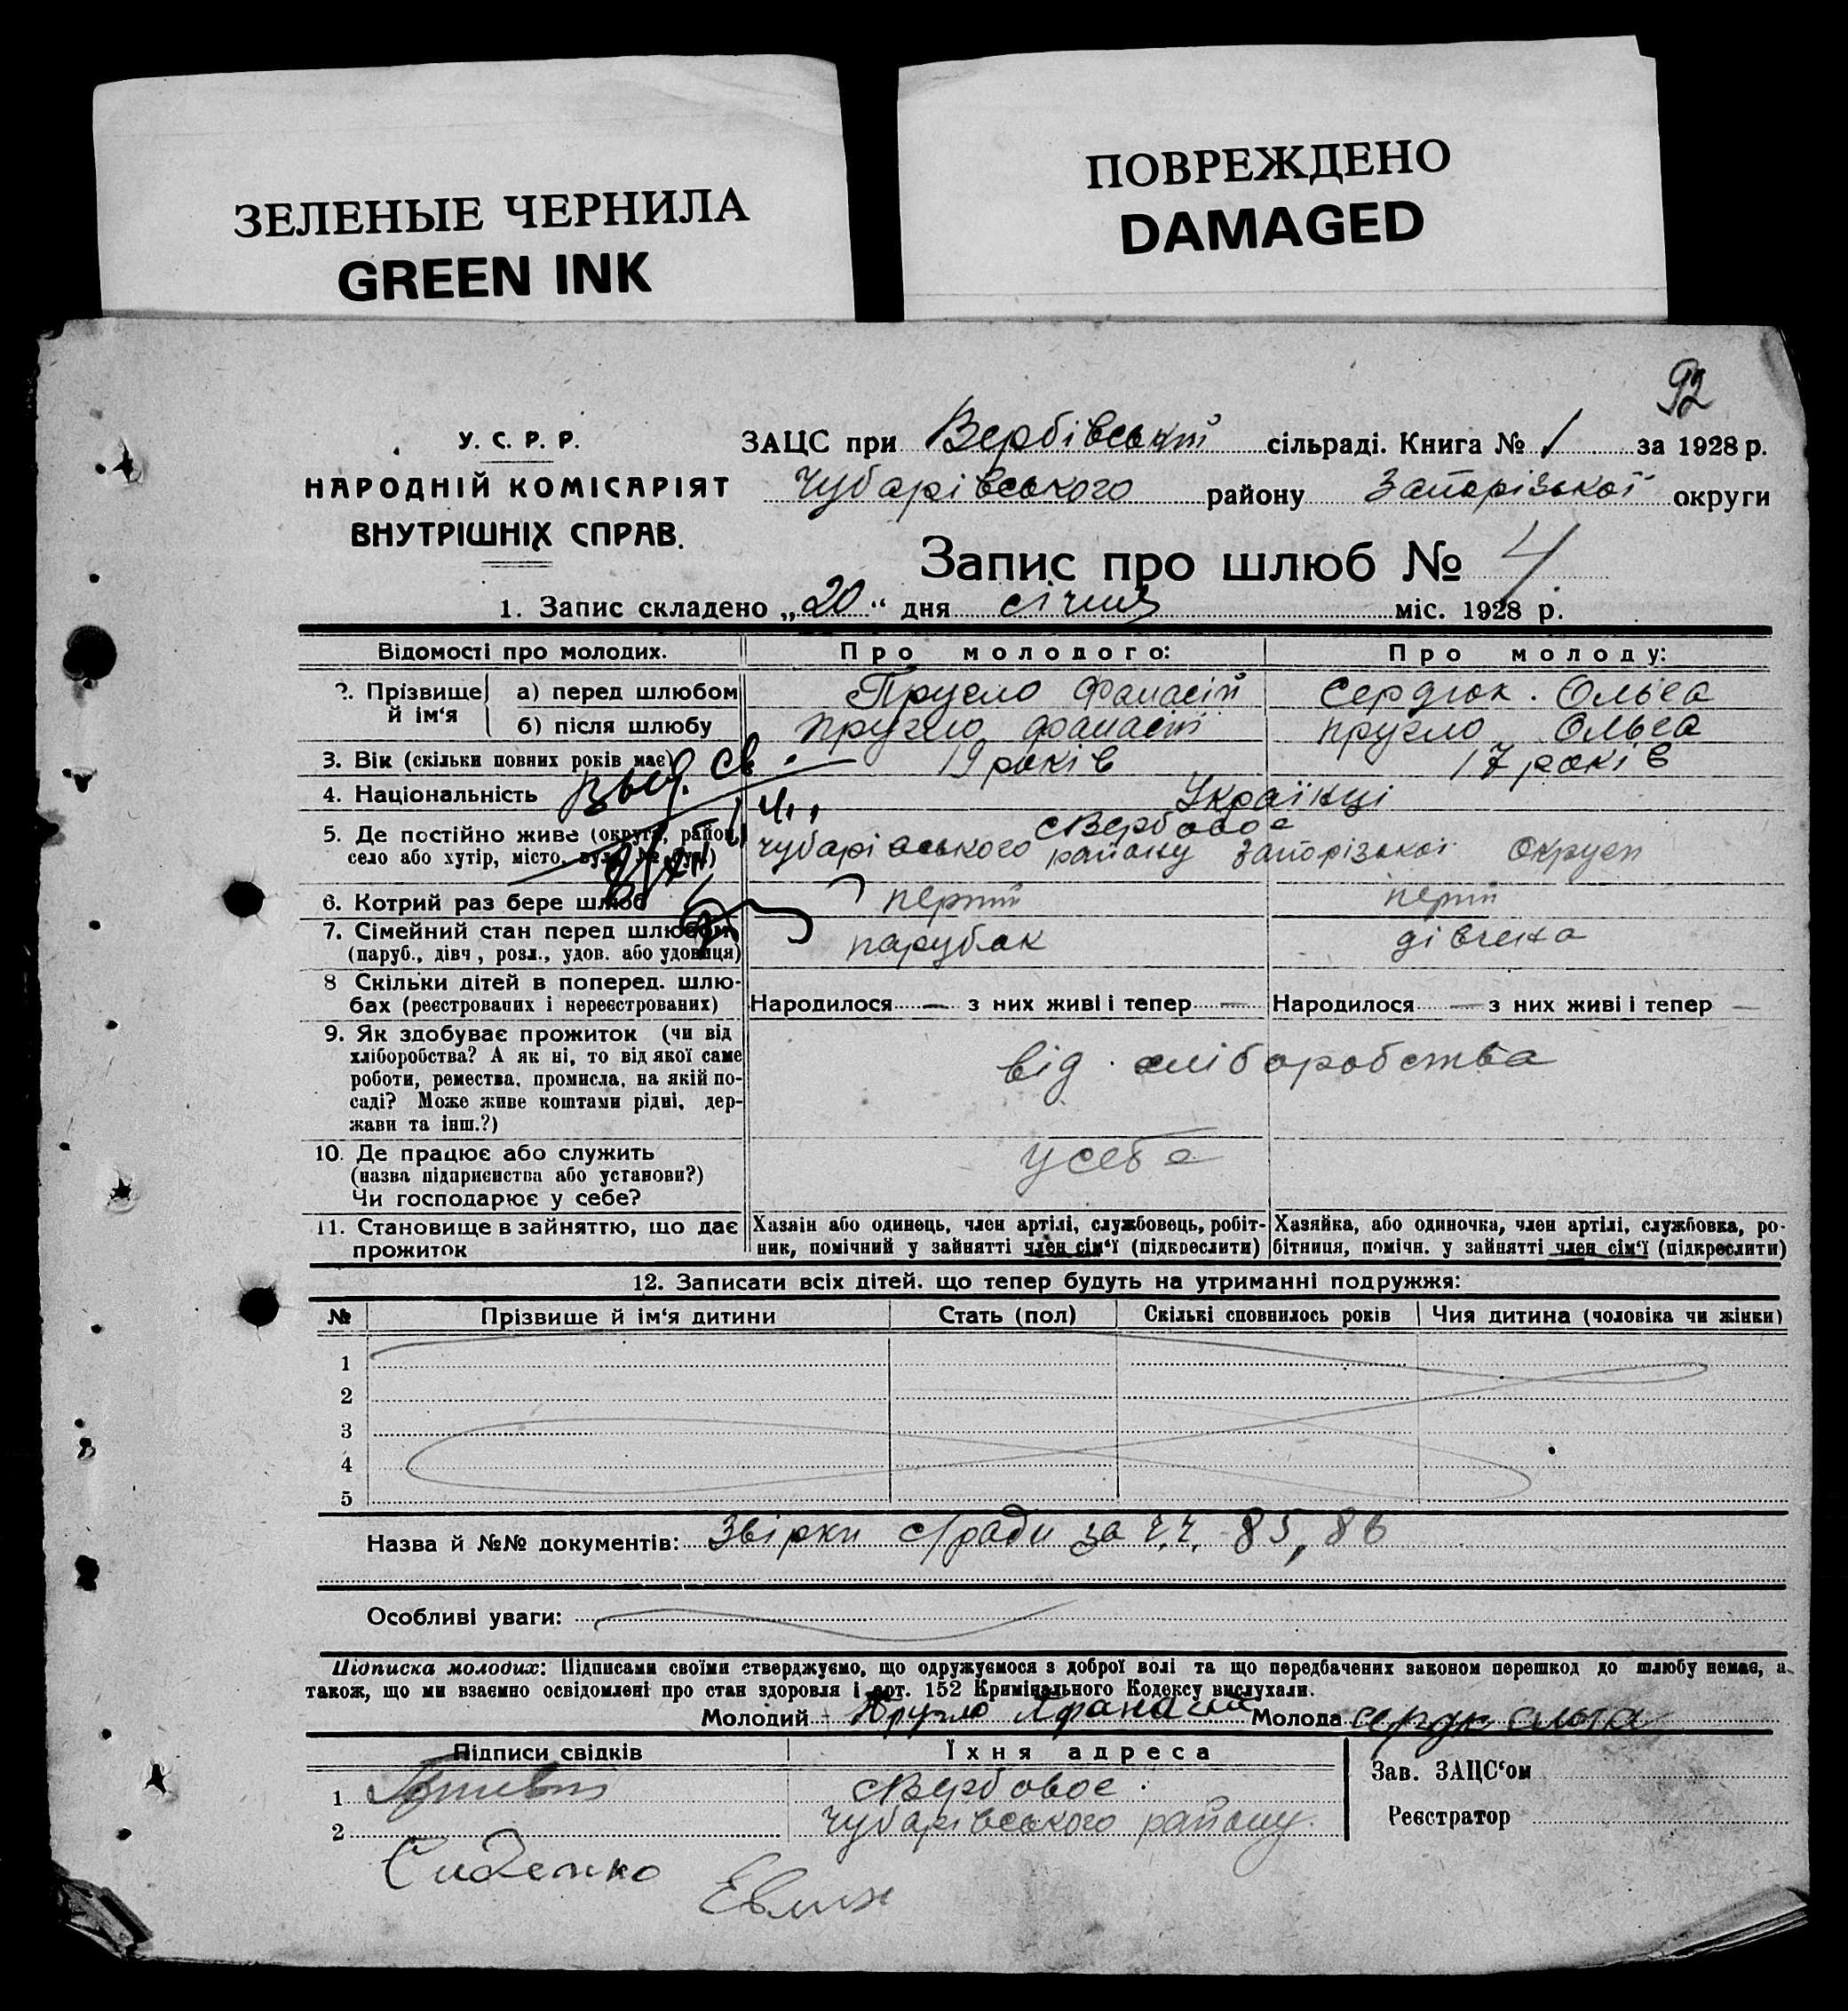 ЗЕЛЕНЫЕ ЧЕРНИЛА
GREEN INK
ПОВРЕЖДЕНО
DAMAGED
92
У. С. Р. Р.
НАРОДНІЙ КОМІСАРІЯТ
ВНУТРІШНІХ СПРАВ.
ЗАЦС при Вербівській сільраді. Книга № 1 за 1928 р.
Чубарівського району Запорізької округи
Запис про шлюб № 4
1. Запис складено „20" дня січня міс. 1928 р.
Відомості про молодих. Про молодого: Про молоду:
2. Прізвище й ім'я
а) перед шлюбом Пругло Фанасій Сердюк. Ольга
б) після шлюбу Пругло Фанасій Пругло Ольга
3. Вік (скільки повних років має) 19 років 17 років
4. Національність Українці
Выд. Св.
5. Де постійно живе (округа, район, село або хутір, місто, вул., №, буд.) с Вербовое
Чубарівського району Запорізької Округи
6. Котрий раз бере шлюб перший перш
7. Сімейний стан перед шлюбом парубок дівчена
(паруб., дівч, розл., удов. або удовиця)
8 Скільки дітей в поперед. шлю-
бах (реєстрованих і нереєстрованих) Народилося — з них живі і тепер — Народилося — з них живі і тепер —
9. Як здобуває прожиток (чи від
хліборобства? А як ні, то від якої саме
роботи, ремества, промисла, на якій по-
саді? Може живе коштами рідні, дер-
жави та інш.?)
від хліборобства
10. Де працює або служить
(назва підприємства або установи?)
Чи господарює у себе?
у себе
11. Становище в зайняттю, що дає
прожиток
Хазяін або одинець, член артілі, службовець, робіт-
ник, помічний у зайнятті член сім'ї (підкреслити)
Хазяйка, або одиночка, член артілі, службовка, ро-
бітниця, помічн. у зайнятті член сім'ї (підкреслити)
12. Записати всіх дітей. що тепер будуть на утриманні подружжя:
№ Прізвище й ім'я дитини Стать (пол) Скількі сповнилось років Чия дитина (чоловіка чи жінки)
1
2
3
4
5
Назва й №№ документів: Звірки с/ради за ч.ч. 85, 86
Особливі уваги:
Підписка молодих: Підписами своїми стверджуємо, що одружуємося з доброї волі та що передбачених законом перешкод до шлюбу немає, а
також, що ми взаємно освідомлені про стан здоровля і арт. 152 Кримінального Кодексу вислухали.
Молодий Пругло Афанасий Молода Сердюк Ольга
Підписи свідків Їхня адреса
Зав. ЗАЦС'ом
1 с Вербовое.
Реєстратор
2 Чубарівського району.